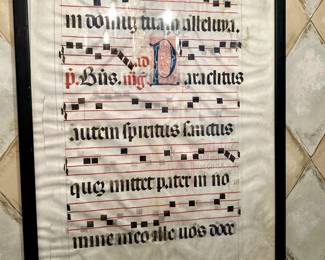 in domum tuam alleluya.
ad
p. Bñs. mg Paraclitus
autem spiritus sanctus
quez mittet pater in no
mine meo ille vos doce